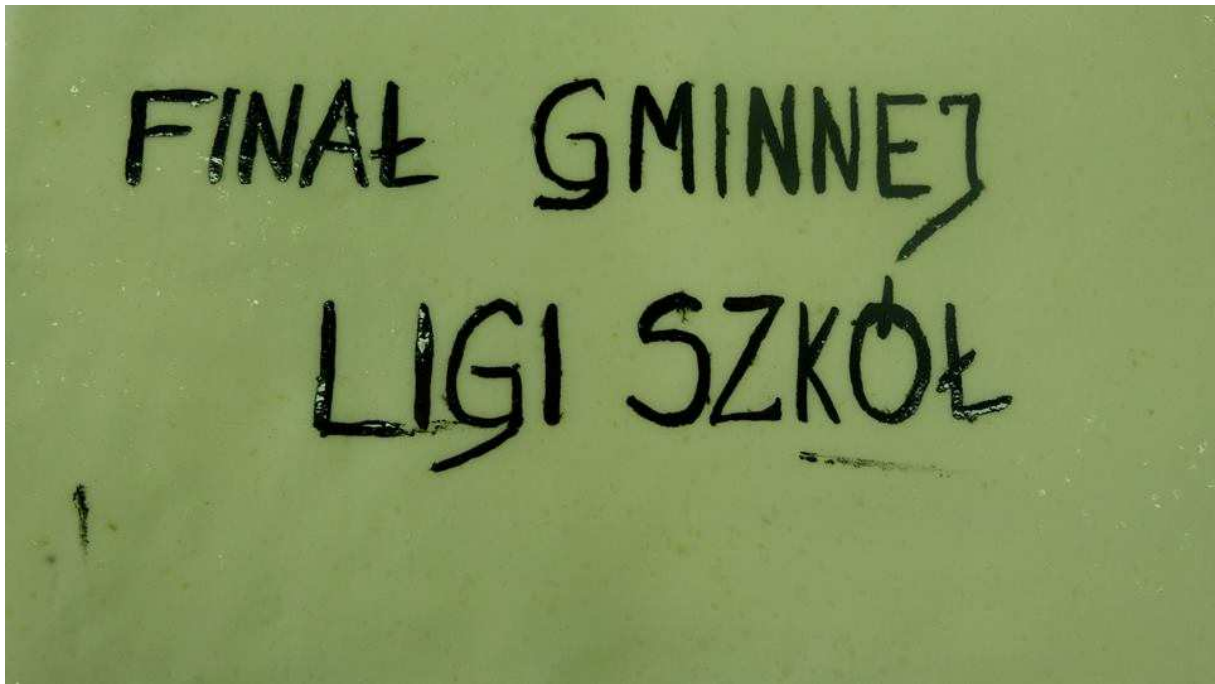 FINAŁ GMINNEJ
LIGI SZKÓŁ